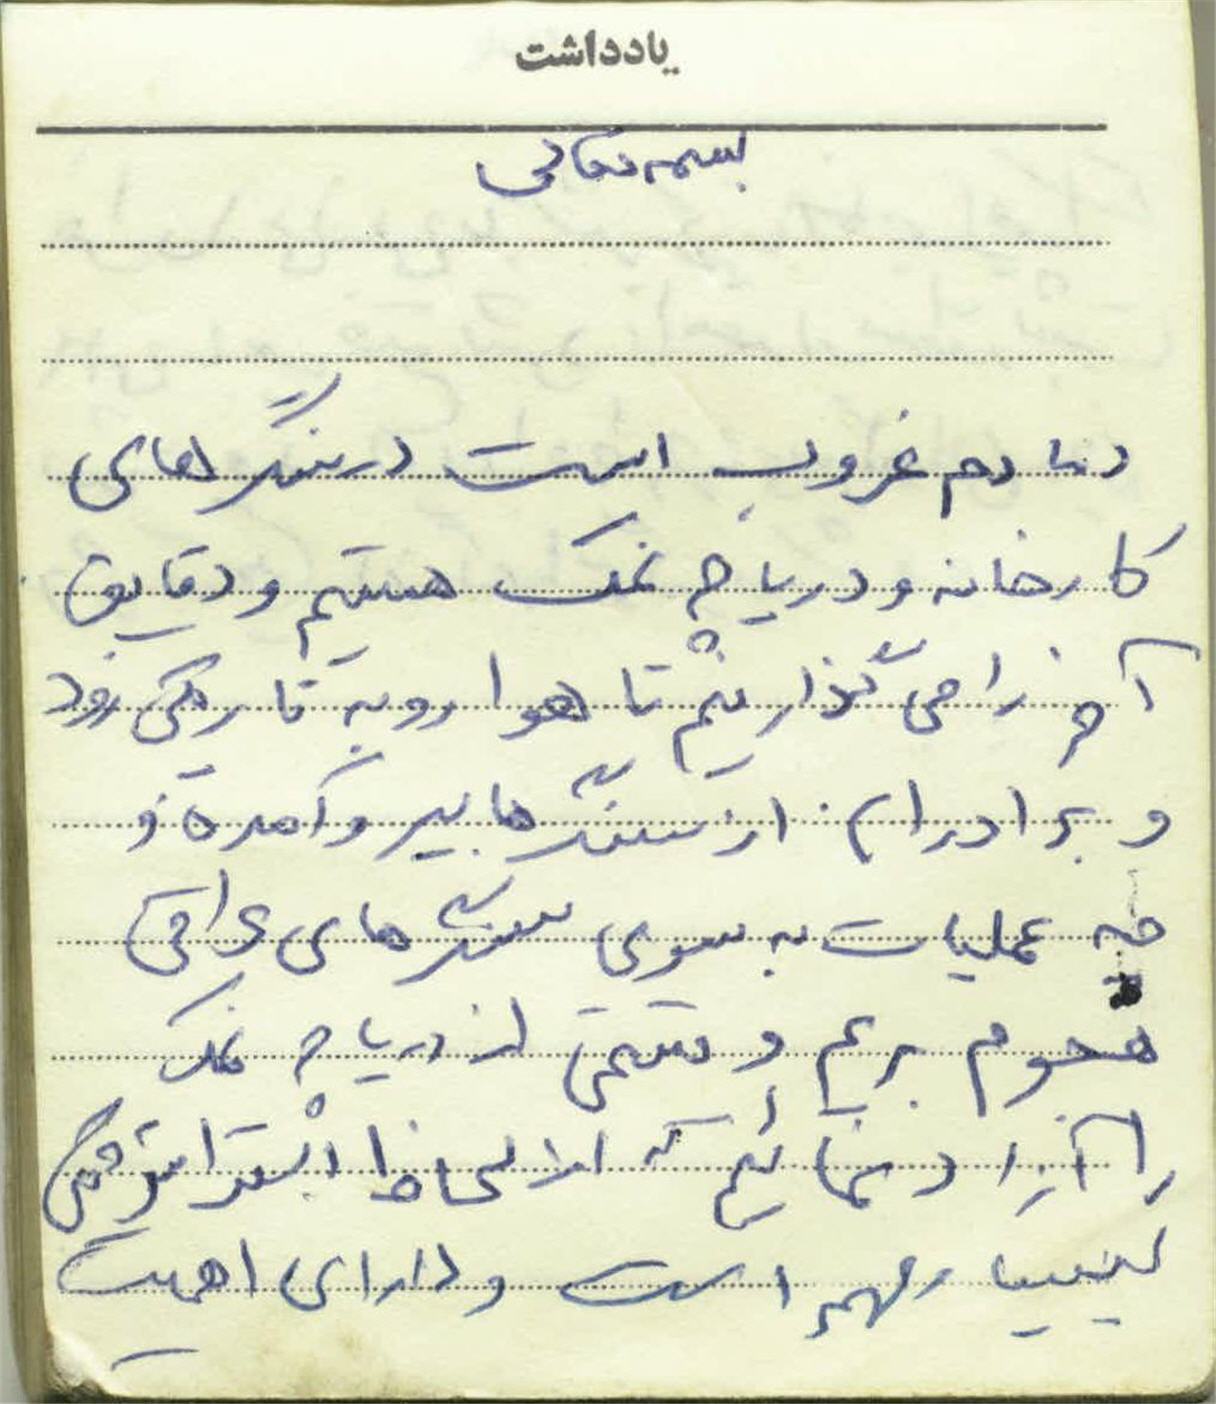 یادداشت
بسمه تعالی
دمادم غروب است در سنگرهای
کارخانه و دریاچه نمک هستیم و دقایق
آخر را می گذارنیم تا هوا رو به تاریکی رود
و برادران از سنگرها بیرو آمده و
چه عملیات به سوی سنگرهای عراقی
هجوم بریم و قسمتی از دریاچه نمک
را آزاد نمائیم که از لحاظ استراتژیکی
بسیار مهم است و دارای اهمیت